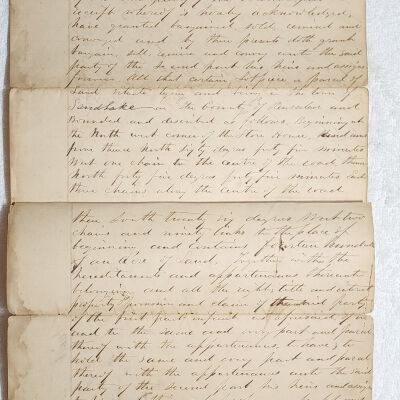 receipt whereof is hereby acknowledged,
have granted bargained sold remised and
conveyed and by these presents doth grant
bargain sell remise and convey unto the said
party of the second part his heirs and assigns
forever All that certain lot piece or parcel of
Land situate lying and being in the town
Sandlake in the County of Rensselaer and
Bounded and described as follows Beginning at
the North west corner of the Store House,
thence North sixty degrees forty five minutes
West one chain to the centre of the road thence
North forty five degrees forty five minutes East
three chains along the centre of the road
thence South twenty six degrees West two
chains and ninety links to the place of
beginning and contains fourteen hundredths
of an acre of Land. Together with the
hereditaments and appurtenances thereunto
belonging and all the right title and interest
property possession and claim of the said party
of the first part of in
and to the same and every part and parcel
thereof with the appurtenances, to have & to
hold the same and every part and parcel
thereof with the appurtenances unto the said
party of the second part his heirs and assigns